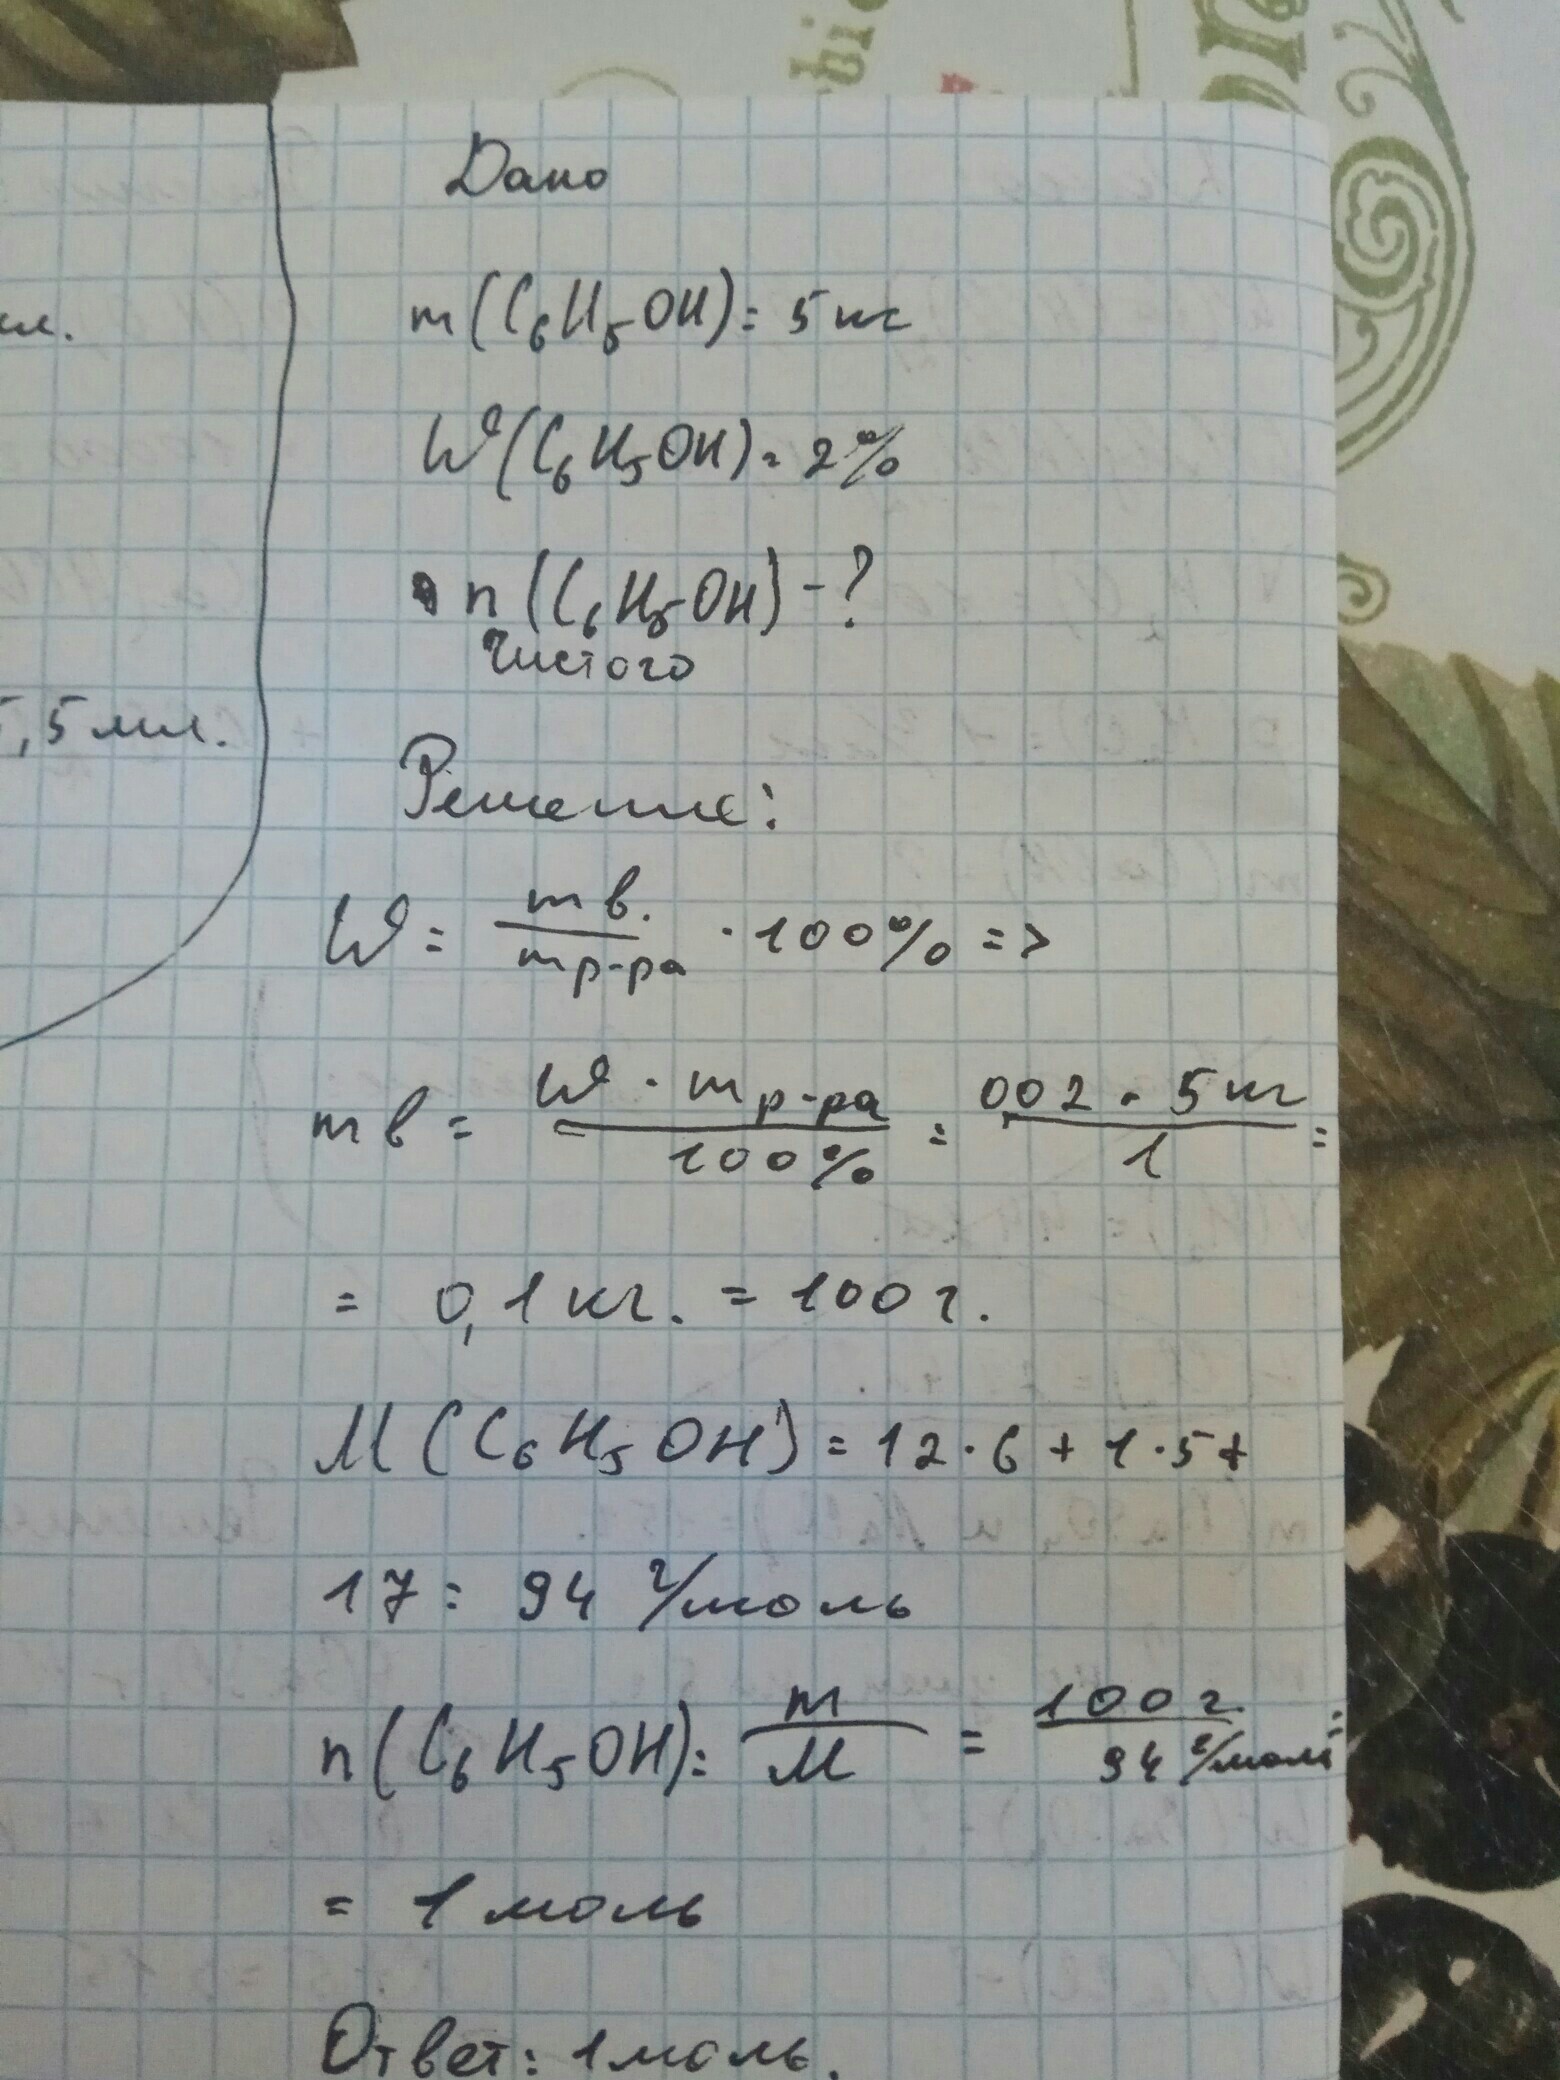 Дано
m(C₆H₅OH)= 5 кг
W(C₆H₅OH)= 2%
n(C₆H₅OH) -?
чистого
5,5 мл.
Решение:
W = mв. / mр-ра · 100% =>
mв = W · mр-ра / 100% = 002 · 5 кг / 1 =
= 0,1 кг. = 100 г.
M(C₆H₅OH) = 12·6 + 1·5 +
17 = 94 г/моль
n(C₆H₅OH) = m / M = 100 г / 94 г/моль =
= 1 моль
Ответ: 1 моль.